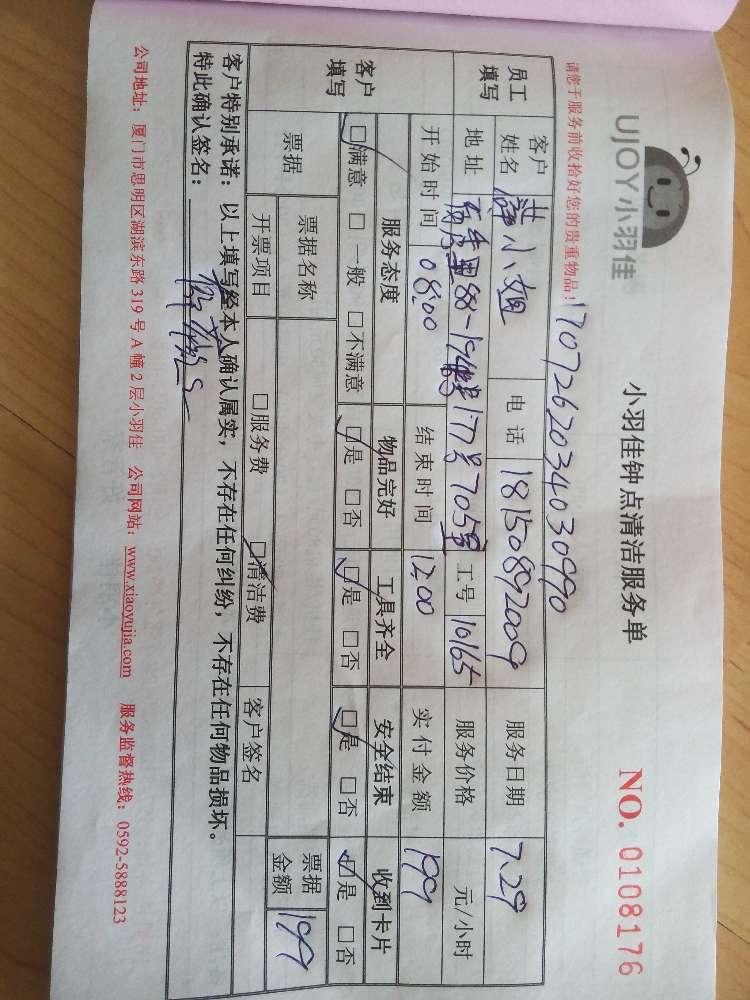 UJOY小羽佳
小羽佳钟点清洁服务单
NO. 0108176
请您于服务前收拾好您的贵重物品!
1707262034030990
员工填写 客户姓名 小姐 电话 18150892009 服务日期 7.29
地址 88-194 177号705室 工号 10165 服务价格 元/小时
开始时间 08:00 结束时间 12:00 实付金额 199
客户填写 服务态度 物品完好 工具齐全 安全结束 收到卡片
□满意 □一般 □不满意 □是 □否 □是 □否 □是 □否 □是 □否
票据 票据名称 票据金额 199
开票项目 □服务费 □清洁费 客户签名
客户特别承诺：以上填写经本人确认属实，不存在任何纠纷，不存在任何物品损坏。
特此确认签名：
公司地址：厦门市思明区湖滨东路319号A幢2层小羽佳 公司网站：www.xiaoyujia.com 服务监督热线：0592-5888123